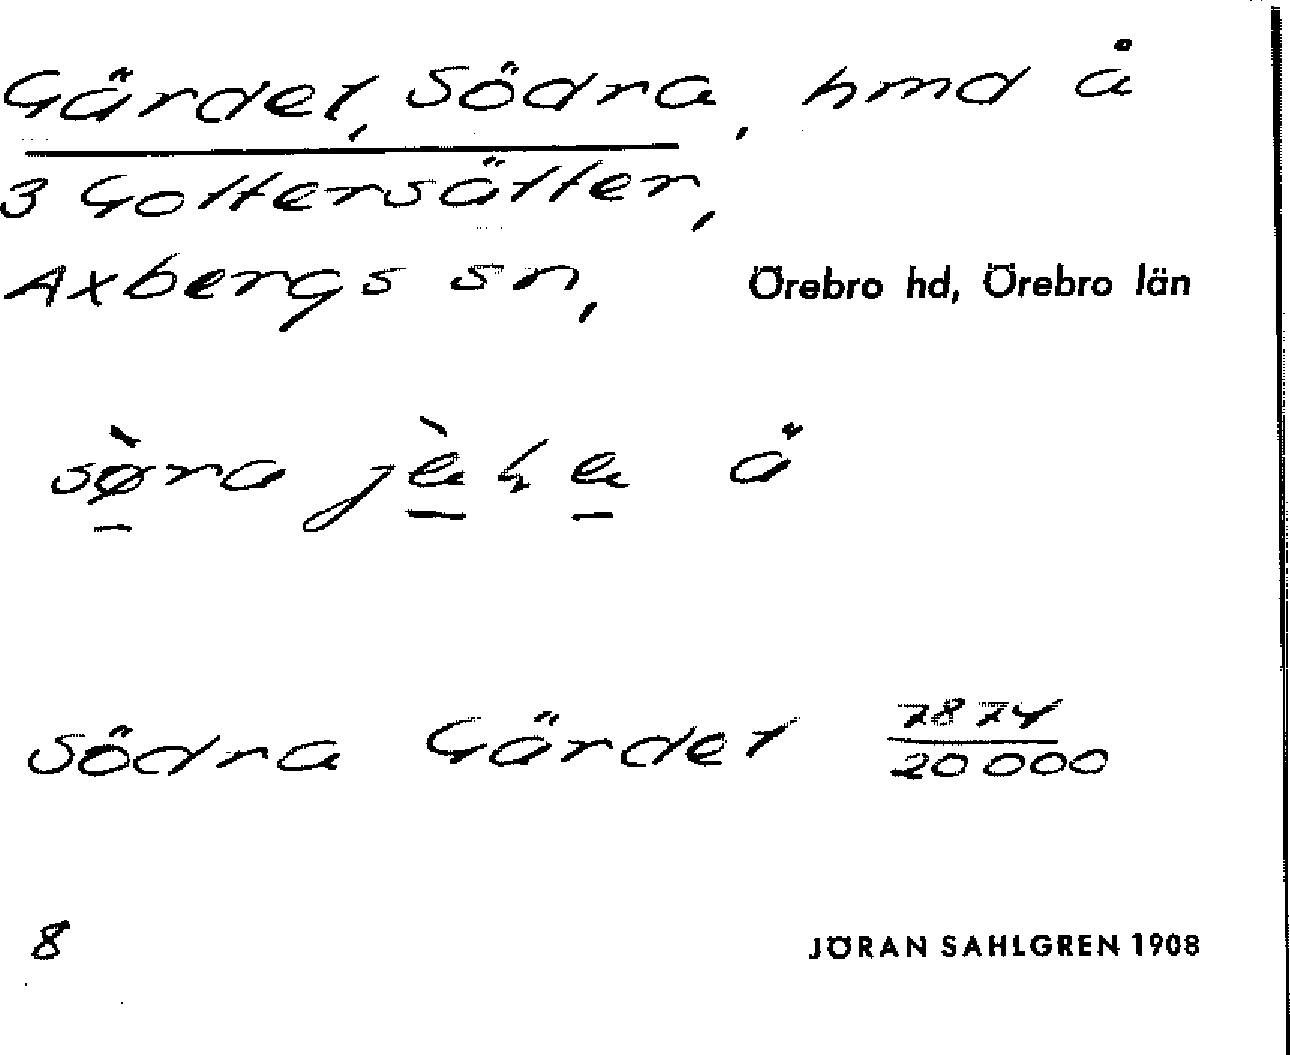 Gärdet, Södra, hmd å
3 Gottersätter,
Axbergs sn, Örebro hd, Örebro län
å
Södra Gärdet 7874/20000
8 JÖRAN SAHLGREN 1908